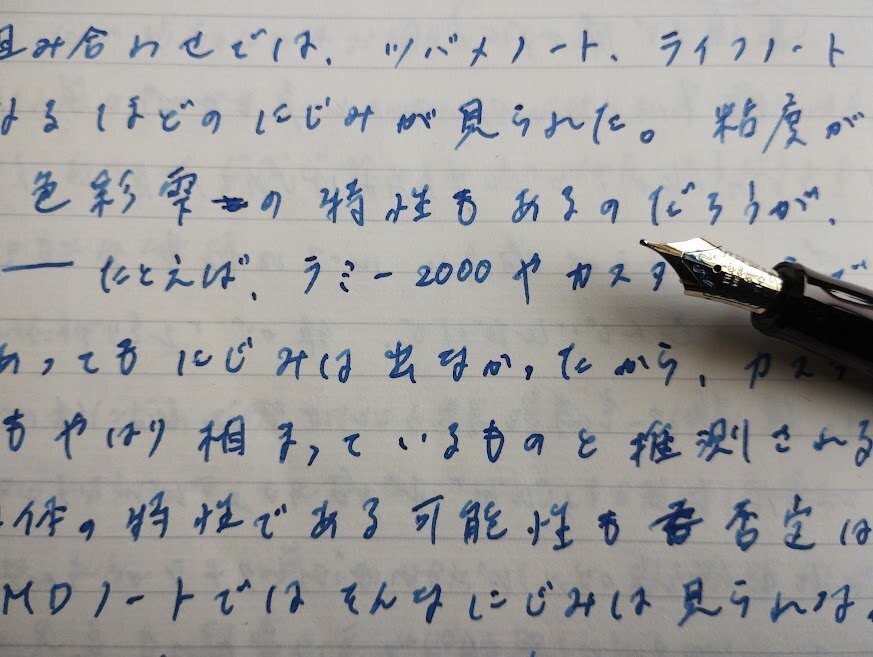 み合わせでは、ツバメノート、ライフノート
なるほどのにじみが見られた。粘度が
色彩雫の特性もあるのだろうが、
── たとえば、ラミー2000やカスタ
あってもにじみは出なかったから、カスタ
もやはり相まっているものと推測される
体の特性である可能性も否定は
MDノートではそんなにじみは見られな